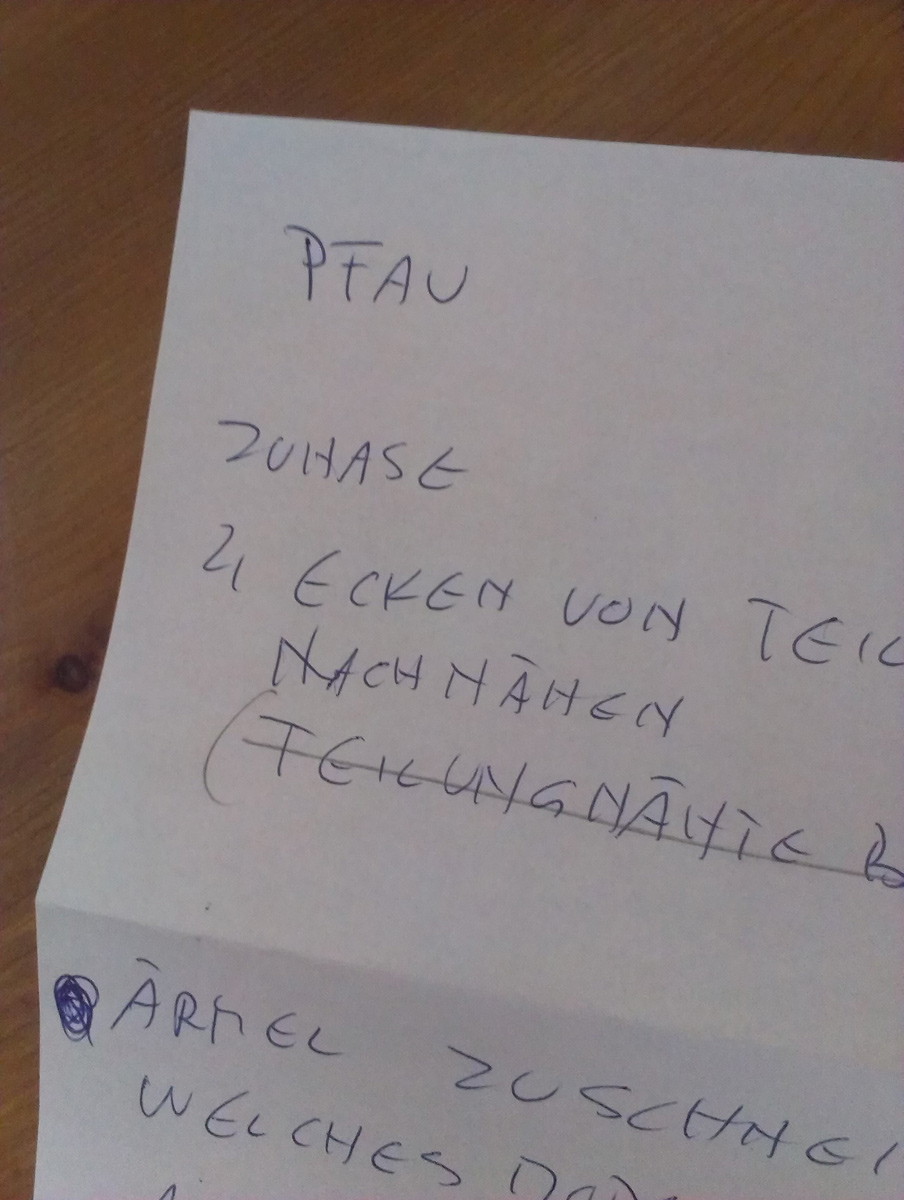 PFAU
ZUHASE
2, ECKEN VON TEIL
NACHNÄHEN
(TEILUNGNÄHTE B
ÄRMEL ZUSCHNEI
WELCHES